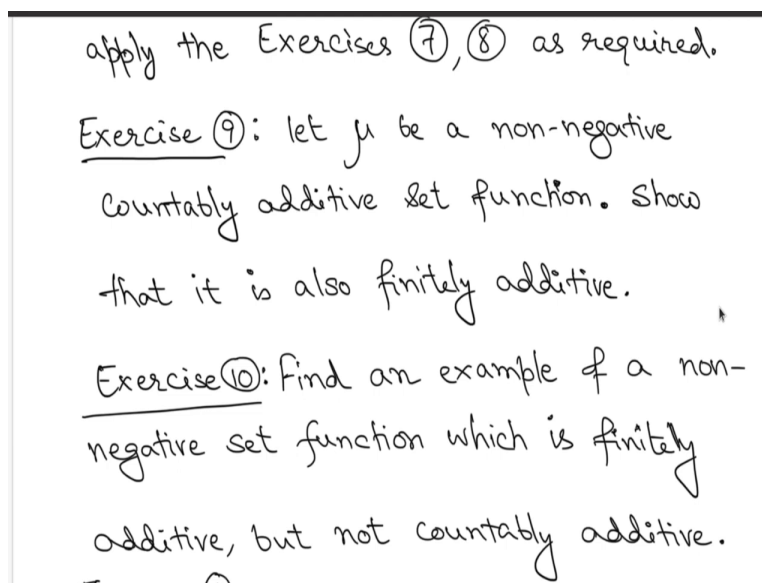 apply the Exercises ⑦, ⑧ as required.
Exercise ⑨: let μ be a non-negative
countably additive set function. Show
that it is also finitely additive.
Exercise ⑩: Find an example of a non-
negative set function which is finitely
additive, but not countably additive.